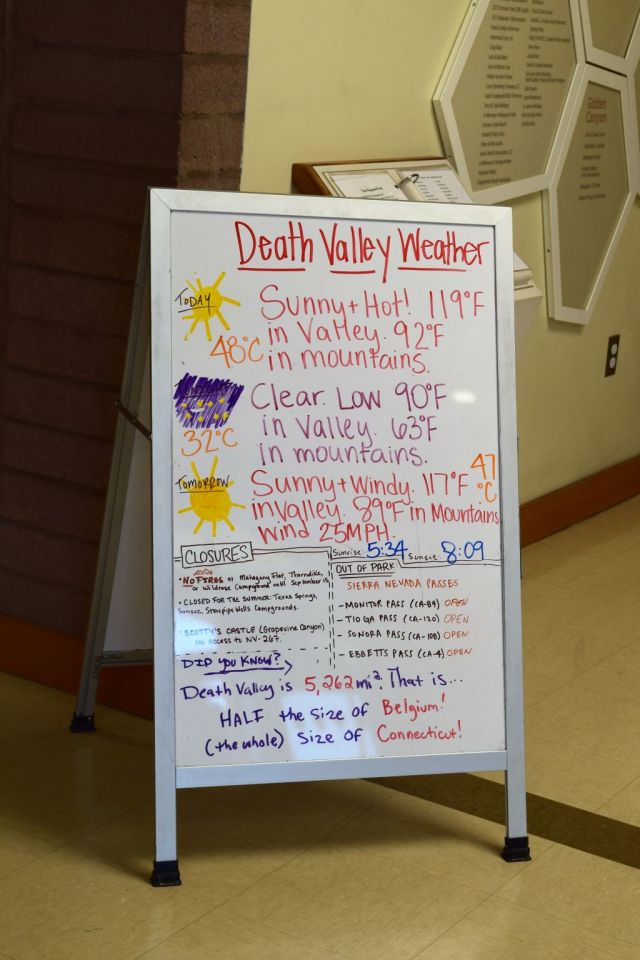 Death Valley Weather
TODAY
Sunny + Hot! 119°F
in Valley. 92°F
48°C in mountains.
Clear. Low 90°F
in Valley. 63°F
32°C in mountains.
TOMORROW
Sunny + Windy. 117°F 47 °C
in valley. 89°F in Mountains
wind 25MPH.
Sunrise: 5:34 Sunset: 8:09
CLOSURES
• NO FIRES at Mahogany Flat, Thorndike,
or Wildrose Campground until September 15
• CLOSED FOR THE SUMMER: Texas Springs,
Sunset, Stovepipe Wells Campgrounds.
• SCOTTY'S CASTLE (Grapevine Canyon)
NO ACCESS to NV-267.
OUT OF PARK:
SIERRA NEVADA PASSES
- MONITOR PASS (CA-89) OPEN
- TIOGA PASS (CA-120) OPEN
- SONORA PASS (CA-108) OPEN
- EBBETTS PASS (CA-4) OPEN
DID YOU KNOW?
Death Valley is 5,262 mi². That is...
HALF the size of Belgium!
(the whole) size of Connecticut!
Golden
Canyon